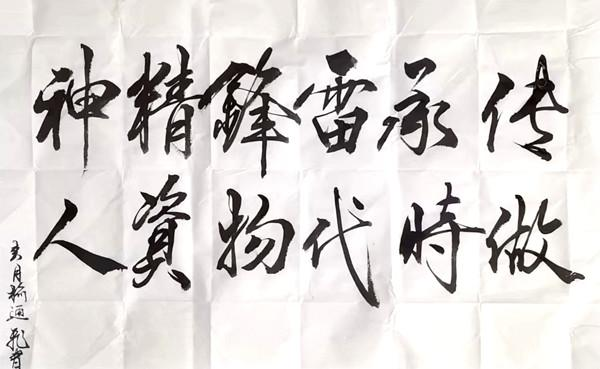 传承雷鋒精神
做時代物資人